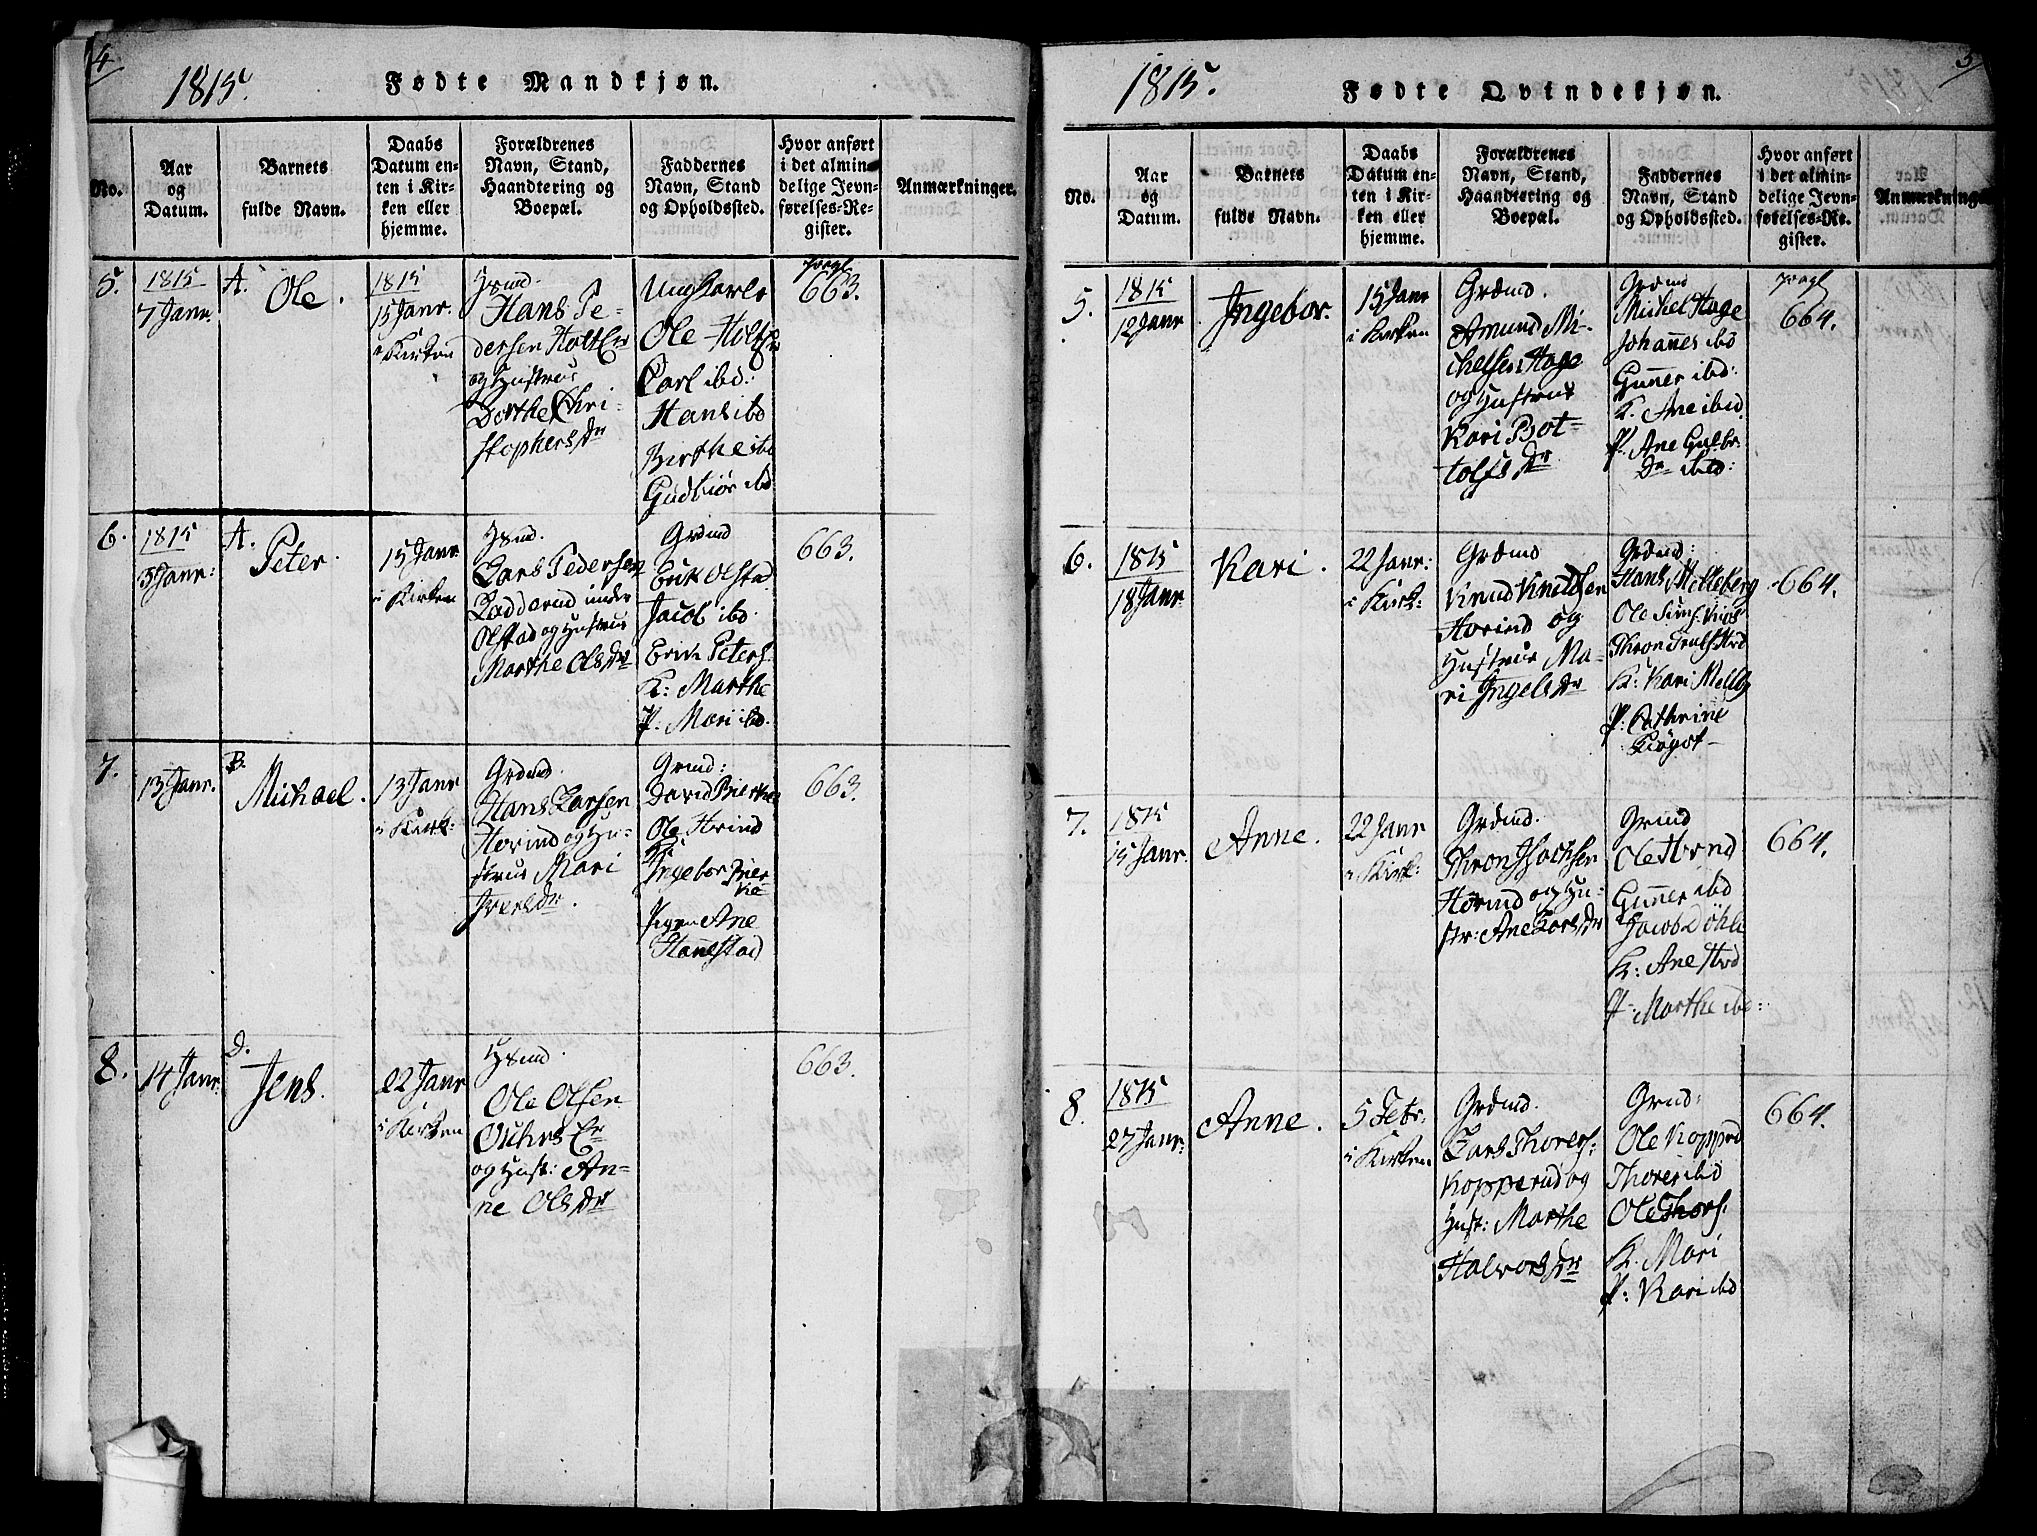 4
1815.
Fødte Mandkjøn.
No.
Aar
og
Datum.
Barnets
fulde Navn.
Daabs
Datum en-
ten i Kir-
ken eller
hjemme.
Forældrenes
Navn, Stand,
Haandtering og
Boepæl.
Faddernes
Navn, Stand
og Opholdssted.
Hvor anført
i det almin-
delige Jevn-
førelses-Re-
gister.
Anmærkninger.
5.
1815
7 Janr.
A.
Ole.
1815
15 Janr.
i Kirken
Hans Pe-
dersen Holt
og Hustrue
Dorthe Chri-
stophersDr
Ungkarle
Ole Holt
Carl ibd:
Hans ibd
Birthe ibd
Gudbiør ibd
663.
6.
1815
3 Janr:
A.
Peter.
15 Janr
i Kirken
Lars Pedersen
under
Olstad og Hustrue
Marthe OlsDr
Grdmd
Erik Olstad
Jacob ibd
Erik Peters.
K: Marthe
P: Mari ibd.
663.
7.
13 Janr.
B.
Michael.
13 Janr
i Kirk:
Grdmd.
Hans Larsen
Horind og Hu-
strue Mari
IversDr.
Grmd:
David
Ole Horind
Ingebor
Pigen Ane
Hanestad
663.
8.
14 Janr.
D.
Jens.
22 Janr
i Kirken
Ole Olsen
og Hust: An-
ne OlsDr
663.
5
1815.
Fødte Qvindekjøn.
No.
Aar
og
Datum.
Barnets
fulde Navn.
Daabs
Datum en-
ten i Kir-
ken eller
hjemme.
Forældrenes
Navn, Stand,
Haandtering og
Boepæl.
Faddernes
Navn, Stand
og Opholdssted.
Hvor anført
i det almin-
delige Jevn-
førelses-Re-
gister.
Anmærkninge
5.
1815
12 Janr
Ingebor.
15 Janr
i Kirken
Grdmd.
Amund Mi-
chelsen Hage
og Hustrue
Kari Bot-
tolfsDr
Grdmd
Michel Hage
Johannes ibd
Gunner ibd:
K. Ane ibid.
P. Ane Gulbr.
Dr ibid:
664.
6.
1815
18 Janr
Kari.
22 Janr:
i Kirk:
Grdmd
Knud Knudsen
Horind og
Hustrue Ma-
ri IngelsDr
Grdmd:
Hans Melleberg
K: Kari Melbg
P: Cathrine
664.
7.
1815
15 Janr.
Anne.
22 Janr
i Kirk:
Grdmd.
Thron Jsachsen
Horind og Hu-
str: Ane LarsDr
Grmd
Ole Hornd
Gunner ibd
Jacob Døhle
K: Ane
P: Marthe ibd:
664.
8.
1815
27 Janr:
Anne.
5 Febr.
i Kirken
Grdmd.
Lars Thorers:
Kopperud og
Hust: Marthe
HalvorsDr
Grmd:
Ole Kopprd
Thorer ibd
Ole Thors.
K. Mari
P: Kari ibd
664.